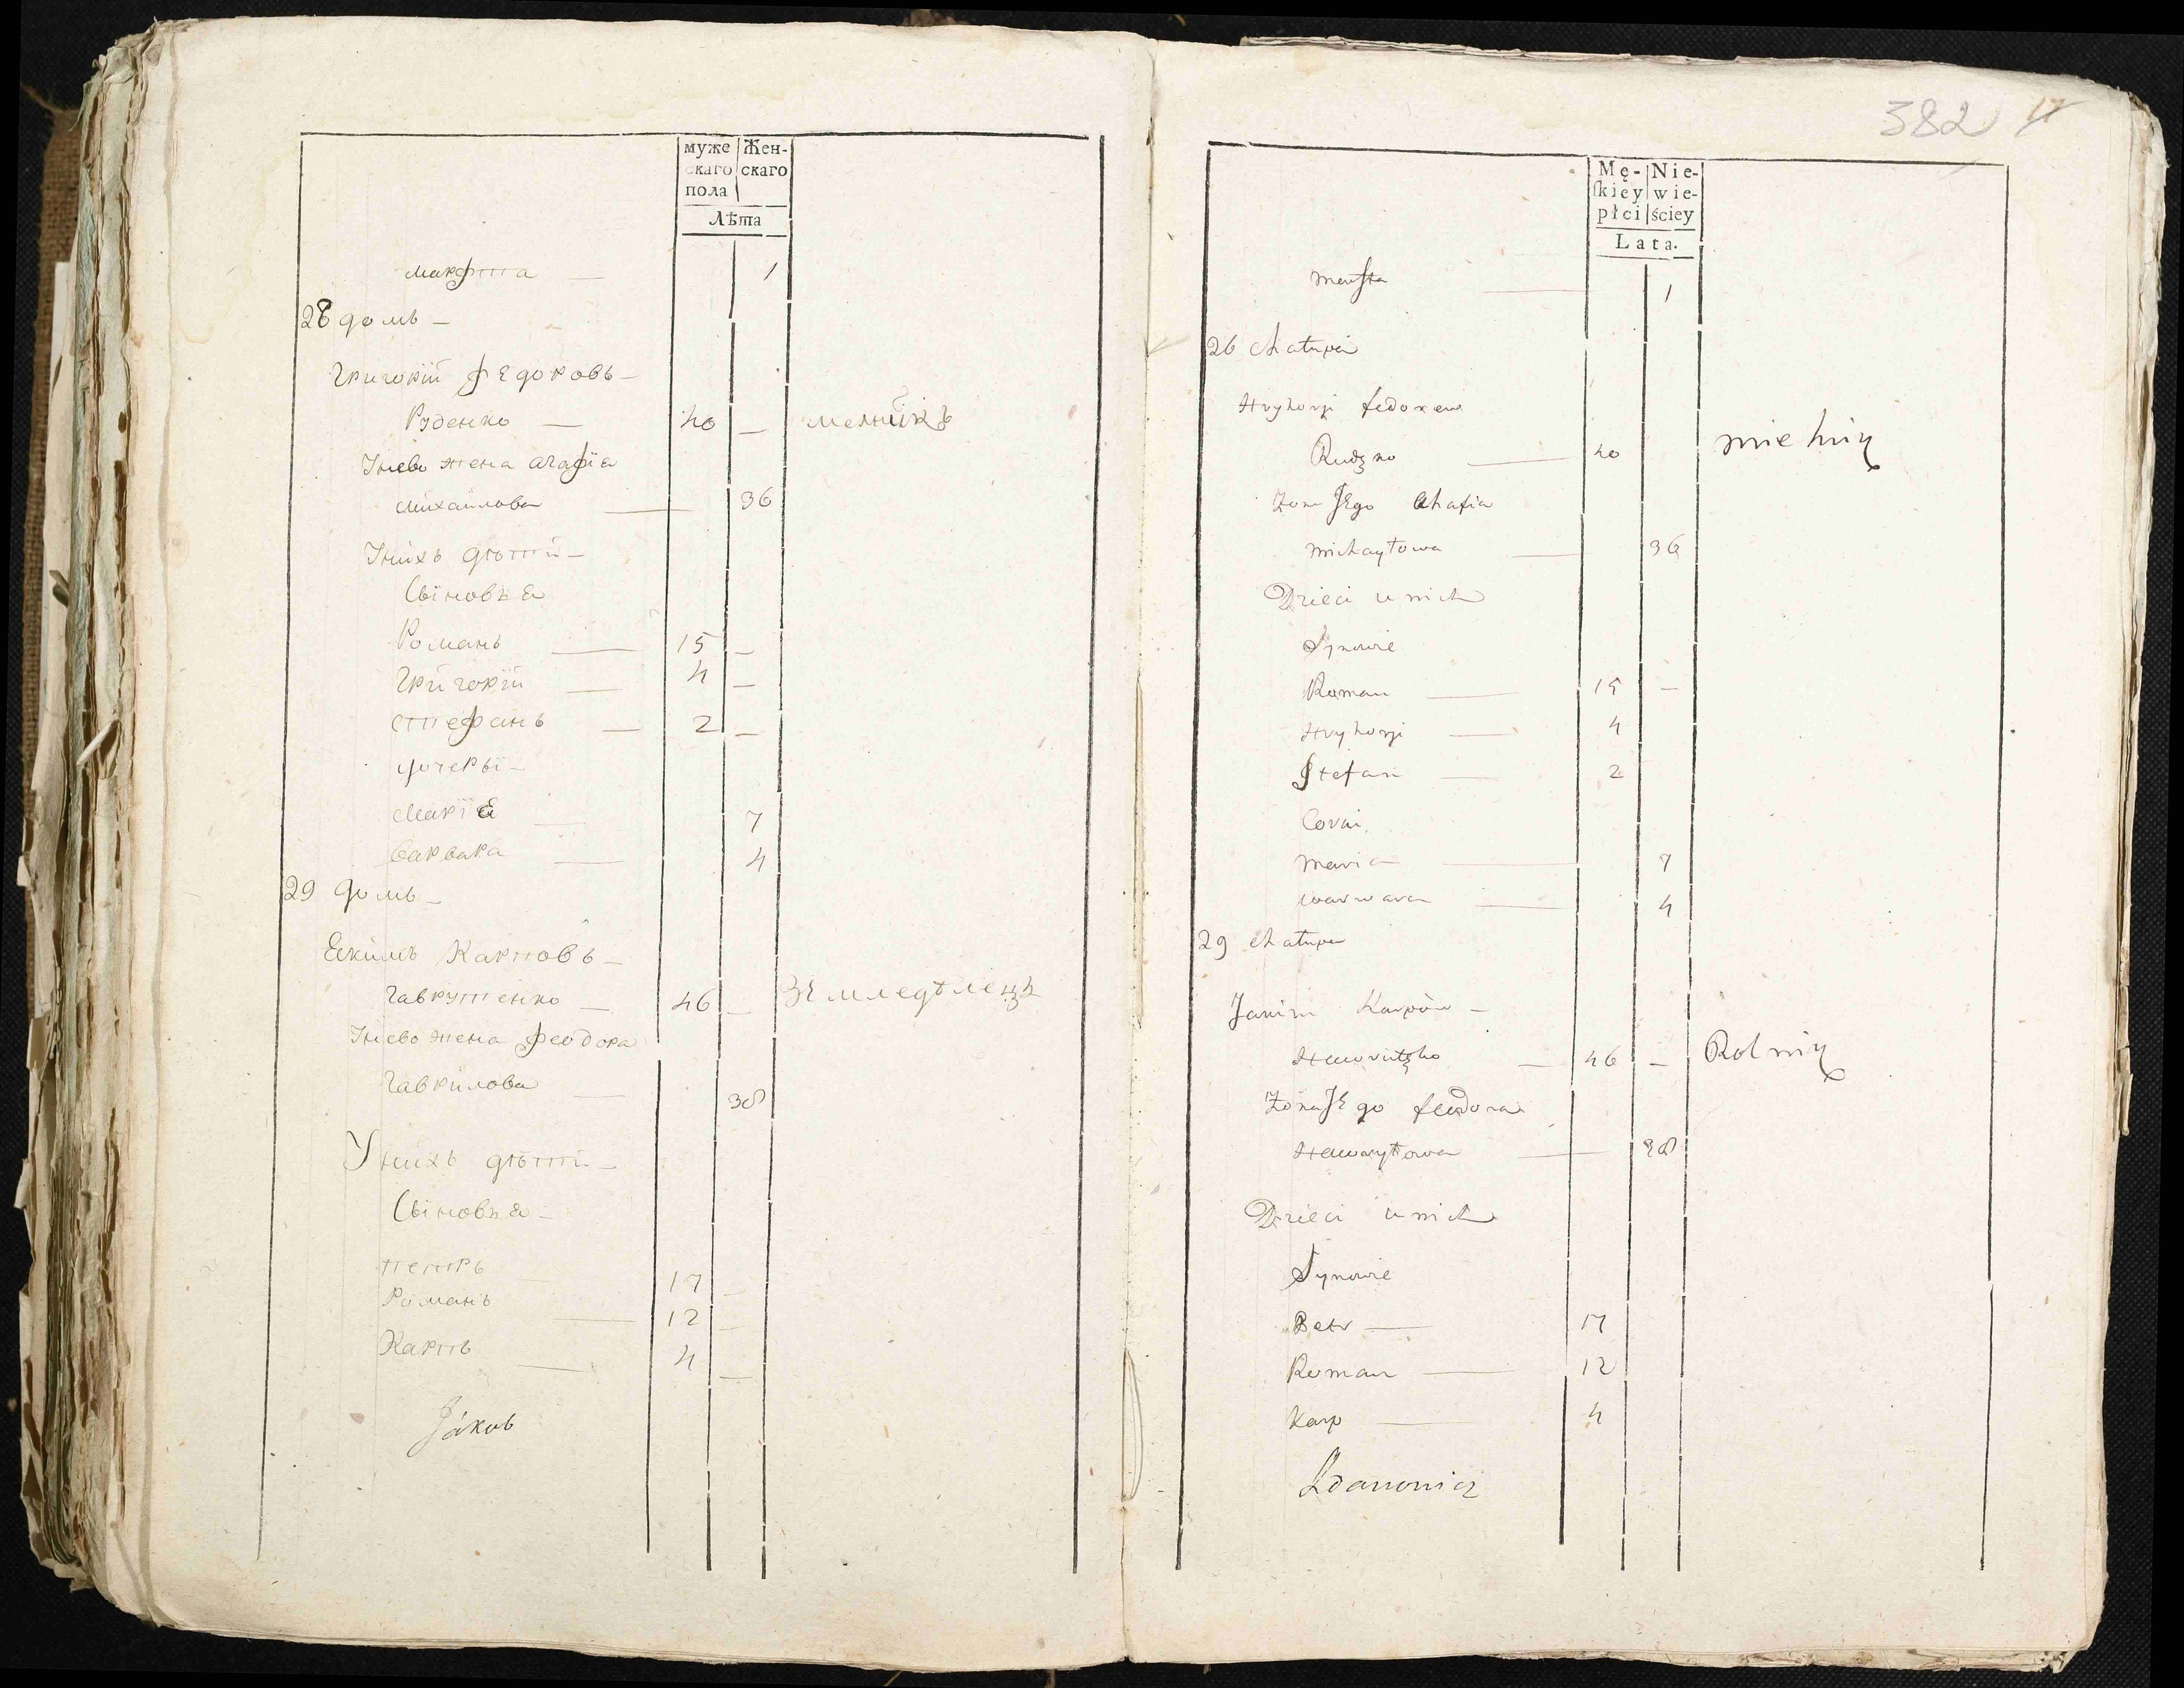 муже
скаго
пола
Жен-
скаго
Лѣта
марфта — 1
28 домъ —
Григорий Федоровъ —
Руденко — 40 — мелникъ
Унево жена агафїа
михаилова — 36
Унихъ дѣти —
Сыновъя
Романъ — 15 —
Григорїй — 4 —
стефанъ — 2 —
дочеры —
Марїя — 7
варвара — 4
29 домъ —
Екимъ Карповъ —
Гаврутенко — 46 — Земледѣлецъ
Унево жена Феодора
Гаврилова — 38
Унихъ дѣти —
Сыновъя —
петръ 17 —
Романъ — 12 —
Карпъ — 4 —
Jаковъ
382 17
Mę-
ſkiey
płci
Nie-
wie-
ściey
Lata.
marfta — 1
26 chałupa
Hryhorji fedorow
Rudzko — 40 mielnik
Zona Jego Ahafia
michayłowa — 36
Dzieci u nich
Synowie
Roman — 15 —
Hryhorji — 4
Stefan — 2
Corki
maria — 7
warwara — 4
29 chałupa
Jakim Karpów —
Hawrutzko — 46 — Rolnik
Zona Jego feodora
Hawryłowa — 38
Dzieci u nich
Synowie
Petr — 17
Roman — 12
Karp — 4
Zdanowicz